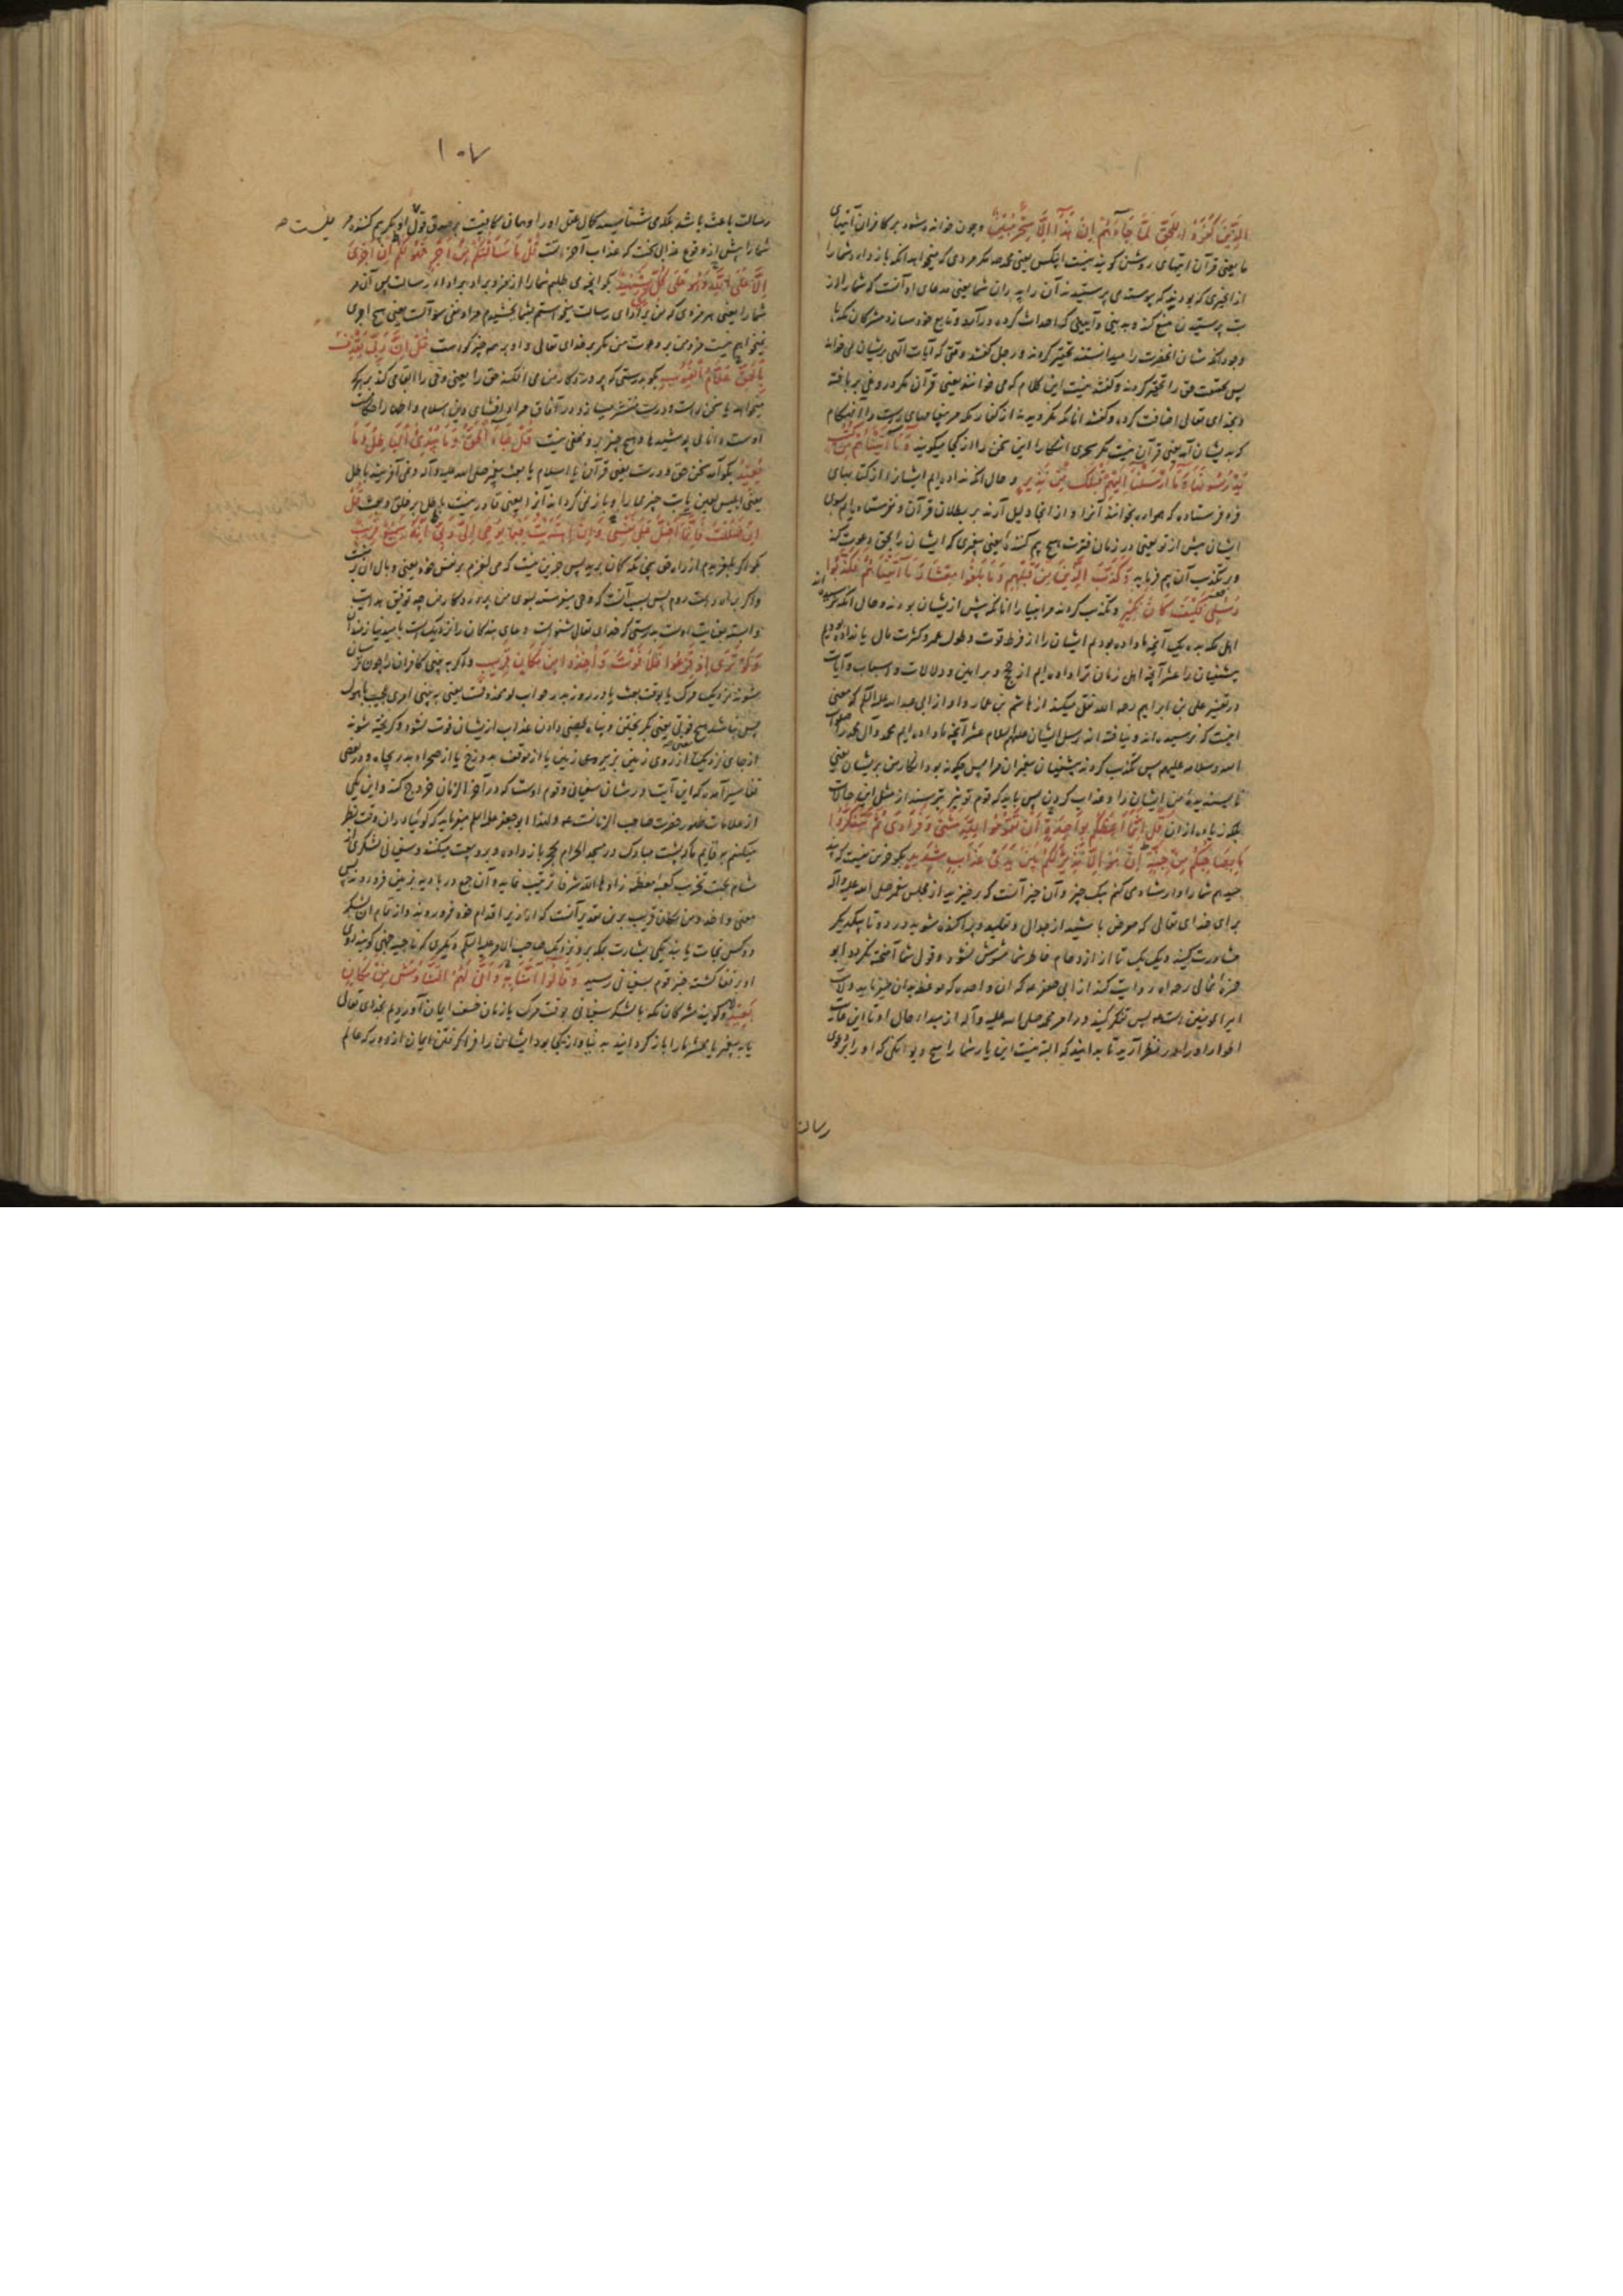 الَّذِينَ كَفَرُوا لِلْحَقِّ لَمَّا جَاءَهُمْ إِنْ هَذَا إِلَّا سِحْرٌ مُبِينٌ وچون خوانده شود بر کافران آیتهای
ما یعنی قرآن آیتهای روشن گویند نیست اینکس یعنی محمد مگر مردی که میخواهد آنکه باز دارد شما را
از آنچیزی که بودند که پیوسته می پرستیدند آن را پدران شما یعنی مدعای او آنست که شما را از
بت پرستیدن منع کند و بدینی و آیینی که احداث کرده در آورد و تابع خود سازد مشرکان مکه با
وجود آنکه شان آنحضرت را میدانستند تحقیر کردند و رجل گفتند وقتی که آیات الهی بریشان می خواند
پس بحقیقت حق را تحقیر کردند و گفتند نیست این کلام که می خوانند یعنی قرآن مگر دروغی بر بافته
و بخدای تعالی اضافت کرده و گفتند آنانکه نگرویدند از کفار مکه مر سخنهای راست را آنهنگام
که بدیشان آمد یعنی قرآن نیست مگر سحری آشکارا این سخن را از کجا میگویند وَمَا آتَيْنَاهُمْ مِنْ كُتُبٍ
يَدْرُسُونَهَا وَمَا أَرْسَلْنَا إِلَيْهِمْ قَبْلَكَ مِنْ نَذِيرٍ و حال آنکه نداده ایم ایشانرا از کتابهای
فرو فرستاده که همواره بخوانند آنرا و از آنجا دلیل آرند بر بطلان قرآن و نفرستاده ایم بسوی
ایشان پیش از تو یعنی در زمان فترت هیچ بیم کننده یعنی پیغمبری که ایشان را بحق دعوت کند
و بر تکذیب آن بیم فرماید وَكَذَّبَ الَّذِينَ مِنْ قَبْلِهِمْ وَمَا بَلَغُوا مِعْشَارَ مَا آتَيْنَاهُمْ فَكَذَّبُوا
رُسُلِي فَكَيْفَ كَانَ نَكِيرِ و تکذیب کردند مر انبیا را آنانکه پیش از یشان بودند و حال آنکه نرسیده اند
اهل مکه بده یک آنچه ما داده بودیم ایشان را از فرط قوت و طول عمر و کثرت مال یا نداده بودیم
پیشینیان را عشر آنچه اهل زمان ترا داده ایم از حجج و براهین و دلالات و اسباب و آیات
در تفسیر علی بن ابراهیم رحمه الله نقل میکند از هاشم بن عمار و او از ابی عبدالله علیه السلم که معنی
اینست که نرسیده اند و نیافته اند رسل ایشان علیهم السلام عشر آنچه ما داده ایم محمد و آل محمد را صلوات
الله و سلامه علیهم پس تکذیب کردند پیشینیان پیغمبران مرا پس چگونه بود انکار من بریشان یعنی
ناپسندیدن من ایشان را و عذاب کردن پس باید که قوم تو نیز بترسند از مثل این حالات
بلکه زیاده از ان قُلْ إِنَّمَا أَعِظُكُمْ بِوَاحِدَةٍ أَنْ تَقُومُوا لِلَّهِ مَثْنَى وَفُرَادَى ثُمَّ تَتَفَكَّرُوا
مَا بِصَاحِبِكُمْ مِنْ جِنَّةٍ إِنْ هُوَ إِلَّا نَذِيرٌ لَكُمْ بَيْنَ يَدَيْ عَذَابٍ شَدِيدٍ بگو جزین نیست که پند
میدهم شما را و ارشاد می کنم بیک چیز و آن چیز آنست که برخیزید از مجلس پیغمبر صلی الله علیه و آله
برای خدای تعالی که معرض باشید از جدال و تقلید و پراکنده شوید دو دو تا بیکدیگر
مشاورت کنید و یک یک تا از ازدحام خاطر شما مشوش نشود و قول شما آمیخته نگردد ابو
حمزه ثمالی رحمه الله روایت کند از ابی جعفر ع که آن واحده که موعظه بدان میفرماید ولایت
امیرالمؤمنین است ع پس تفکر کنید در امر محمد صلی الله علیه و آله از مبداء حال او تا این حالت
اطوار او را در نظر آرید تا بدانید که البته نیست این یار شما را هیچ دیوانگی که او را بدعوی
رسالت
۱۰۷
رسالت باعث باشد بلکه می شناسید کمال عقل او را و همان کافیست بر صدق قول او نیست او مگر بیم کننده مر
شما را پیش از وقوع عذابی سخت که عذاب آخرتست قُلْ مَا سَأَلْتُكُمْ مِنْ أَجْرٍ فَهُوَ لَكُمْ إِنْ أَجْرِيَ
إِلَّا عَلَى اللَّهِ وَهُوَ عَلَى كُلِّ شَيْءٍ شَهِيدٌ بگو آنچه می طلبم شما را از مزد بر اداء رسالت پس آن مر
شما را یعنی هر مزدی که من بر ادای رسالت میخواستم بشما بخشیدم مراد نفی سؤالست یعنی هیچ اجری
نمیخواهم نیست مزد من بر دعوت من مگر بر خدای تعالی و او بر همه چیز گواهست قُلْ إِنَّ رَبِّي يَقْذِفُ
بِالْحَقِّ عَلَّامُ الْغُيُوبِ بگو بدرستی که پروردگار من می افکند حق را یعنی وحی را القا می کند بر هر که
میخواهد یا سخن راست و درست منتشر میسازد در آفاق مراد افشای دین اسلام و اظهار احکام
اوست دانای پوشیدها و هیچ چیز برو مخفی نیست قُلْ جَاءَ الْحَقُّ وَمَا يُبْدِئُ الْبَاطِلُ وَمَا
يُعِيدُ بگو آمد سخن حق و درست یعنی قرآن یا اسلام یا بعثت پیغمبر صلی الله علیه و آله و نمی آفریند باطل
یعنی ابلیس لعین یا بت چیزی را و باز نمی گرداند آنرا یعنی قادر نیست باطل بر خلق و بعث قُلْ
إِنْ ضَلَلْتُ فَإِنَّمَا أَضِلُّ عَلَى نَفْسِي وَإِنِ اهْتَدَيْتُ فَبِمَا يُوحِي إِلَيَّ رَبِّي إِنَّهُ سَمِيعٌ قَرِيبٌ
بگو اگر بلغزیدم از راه حق چنانکه گمان برید پس جزین نیست که می لغزم بر نفس خود یعنی وبال آن بر منست
و اگر براه راست روم پس بسبب آنست که وحی میفرستد بسوی من پروردگار من چه توفیق هدایت
وابسته بعنایت اوست بدرستی که خدای تعالی شنواست دعای بندگان را نزدیکست بامید نیازمندان
وَلَوْ تَرَى إِذْ فَزِعُوا فَلَا فَوْتَ وَأُخِذُوا مِنْ مَكَانٍ قَرِيبٍ و اگر به بینی کافران را چون ترسان
شوند نزدیک مرگ یا بوقت بعث یا در روز بدر جواب لو محذوفست یعنی به بینی امری عجیب با هول
پس نباشد هیچ فوتی یعنی بگریختن و پناه بحصنی دادن عذاب ازیشان فوت نشود و گرفته شوند
از جای نزدیک یعنی از روی زمین بزیر روی زمین یا از موقف بدوزخ یا از صحرای بدر بچاه و در بعضی
تفاسیر آمده که این آیت در شان سفیانی و قوم اوست که در آخر الزمان خروج کند و این یکی
از علامات ظهور حضرت صاحب الزمانست ع و لهذا ابو جعفر علیه السلم میفرماید که گوئیا در ان وقت نظر
میکنم بر قایم که پشت مبارک در مسجد الحرام بحجر باز داده و برو بیعت میکنند و سفیانی لشکری از
شام بجهت تخریب کعبهٔ معظمه زادها الله شرفا ترتیب نماید و آن جمع در بادیه بزمین فرو روند پس
معنی و اخذوا من مکان قریب برین تقدیر آنست که از زیر اقدام خود فرو روند و از تمام آن لشکر
دو کس نجات یابند یکی بشارت بمکه برد نزدیک صاحب الامر علیه السلم و دیگری که ناجیه جهنی گویند روی
او بر قفا گشته خبر قوم بسفیانی رسید وَقَالُوا آمَنَّا بِهِ وَأَنَّى لَهُمُ التَّنَاوُشُ مِنْ مَكَانٍ
بَعِيدٍ و گویند مشرکان مکه یا لشکر سفیانی بوقت مرگ یا زمان خسف ایمان آوردیم بخدای تعالی
یا به پیغمبر یا بحشر